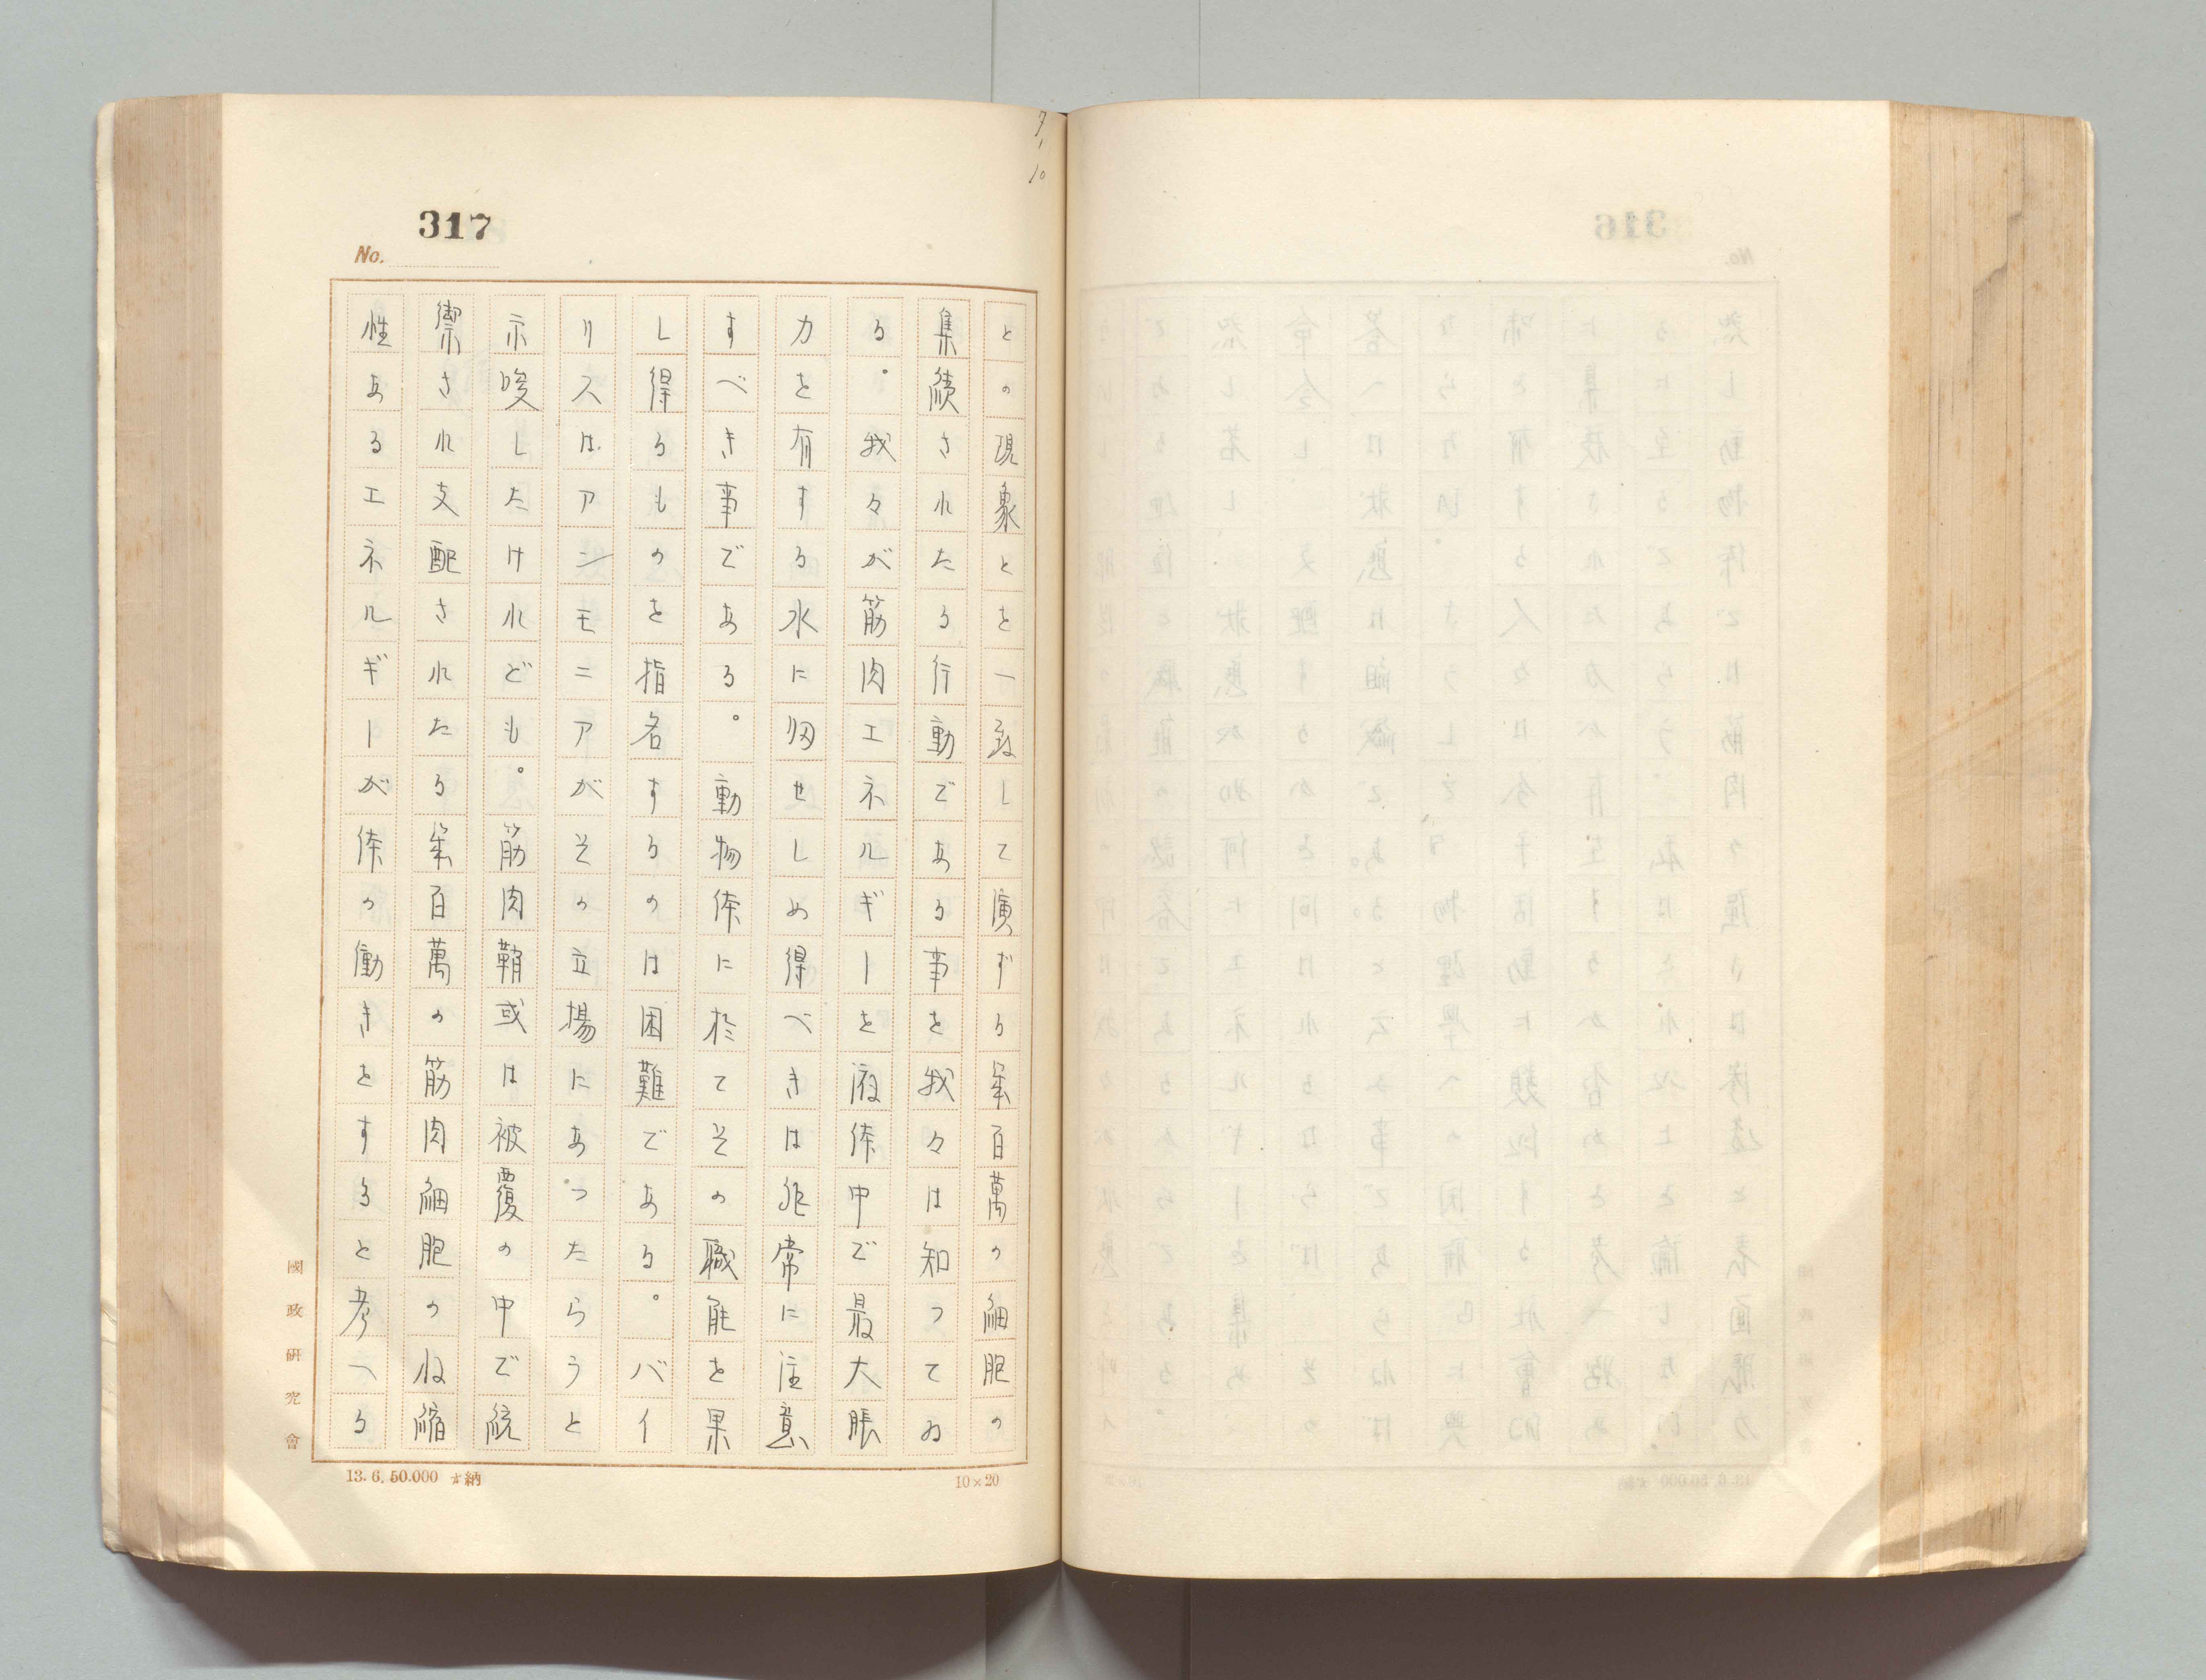 7'10
317
No.
との現象とを一致して演ずる幾百萬の細胞の
集績されたる行動である事を我々は知つてゐ
る。我々が筋肉エネルギーを液体中で最大脹
力を有する水に帰せしめ得べきは非常に注意
すべき事である。動物体に於てその職能を果
し得るものを指名するのは困難である。バイ
リスはアンモニアがその立場にあつたらうと
示唆したけれども。筋肉鞘或は被覆の中で統
禦され支配されたる幾百萬の筋肉細胞の収縮
性あるエネルギーが体の働きとすると考へる
國政研究會
10×20
13.6.50.000 納